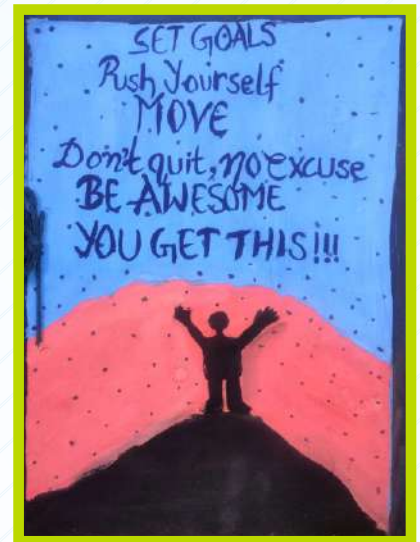 SET GOALS
Push Yourself
MOVE
Don't quit, no excuse
BE AWESOME
YOU GET THIS!!!